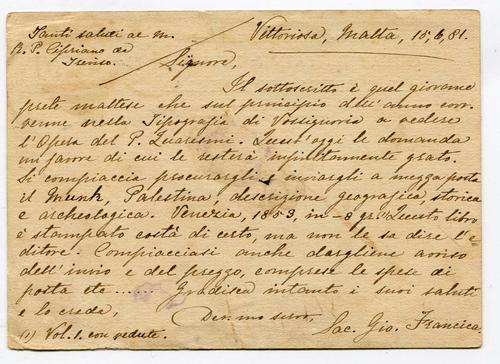 Tanti saluti al m.
R. P. Cipriano da
Treviso.
Vittoriosa, Malta, 15, 6, 81.
Signore,
Il sottoscritto è quel giovane
prete maltese che sul principio dell'anno cor-
venne nella Tipografia di Vossignoria a vedere
l'Opera del P. Quaresmi. Quest'oggi le domanda
un favore di cui le resterà infinitamente grato.
Si compiaccia procurargli e inviargli a mezzo posta
il Munk, Palestina, descrizione geografica, storica
e archeologica. Venezia, 1853, in-8 gr. Questo libro
è stampato costà di certo, ma non le sa dire l'e-
ditore. Compiacciasi anche dargliene avviso
dell'invio e del prezzo, comprese le spese di
posta etc.... Gradisca intanto i suoi saluti
e lo creda,
Dev.mo servo,
(1) Vol. 1. con vedute.
Sac. Gio. Francica.